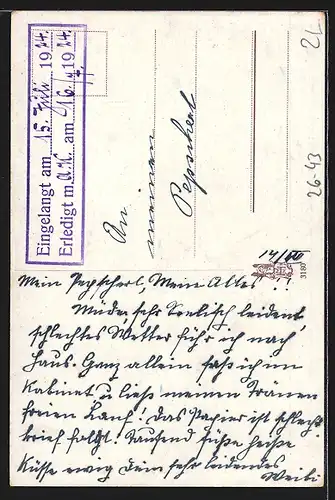 Eingelangt am 15. Juli 1924.
Erledigt m. A.K. am 16./7. 1924.
An
meinen
Pepscherl
21
26-43
14/VII
3180
Mein Pepscherl, Mein Alter!
Müde, sehr Seelisch leident,
schlechtes Wetter fuhr ich nach
Haus. Ganz allein saß ich im
Kabinet u. ließ meinen Tränen
freien Lauf! Das Papier ist schlecht
brief folgt! Tausend süße heiße
Küsse ewig Dein sehr leidendes
Weibi